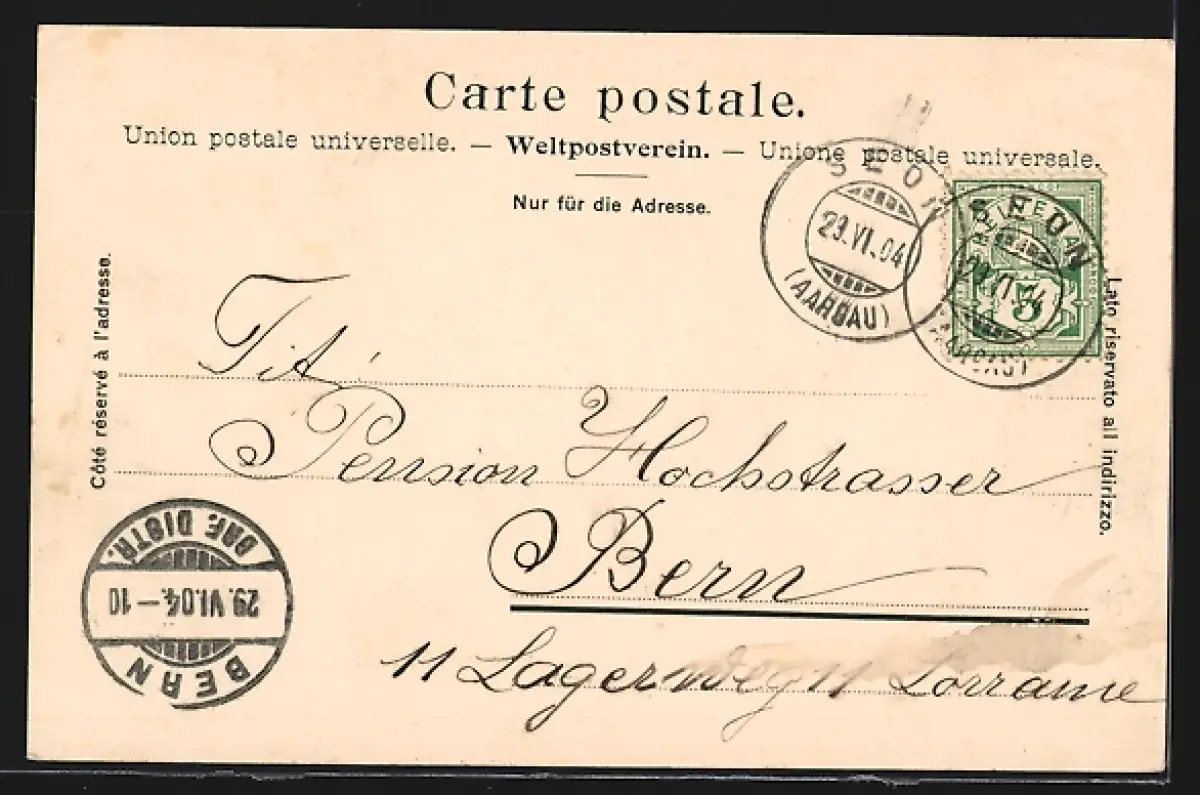 Carte postale.
Union postale universelle. — Weltpostverein. — Unione postale universale.
Nur für die Adresse.
Côté réservé à l'adresse.
Lato riservato all indirizzo.
SEON
29.VI.04
(AARGAU)
SEON
29.VI.04
(AARGAU)
5
Tit.
Pension Hochstrasser
Bern
11 Lagerweg 11 Lorraine
BERN
29.VI.04.–10
BRF. DISTR.